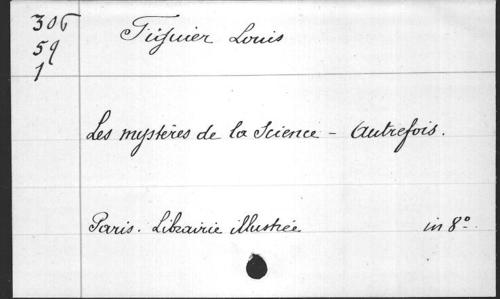 306
59
1
Figuier Louis
Les mystères de la Science - Autrefois.
Paris. Librairie illustrée in 8°